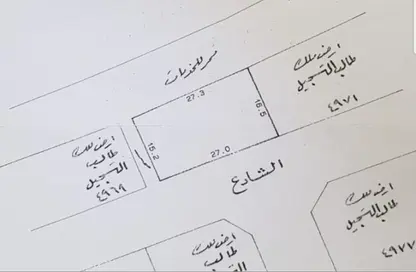 ممر للخدمات
ارض ملك
طالب التسجيل
٤٩٧١
27.3
16.5
16.2
27.0
ارض ملك
طالب
التسجيل
٤٩٦٩
الشارع
ارض ملك
طالب التسجيل
٤٩٧٧
ارض ملك
طالب
التسجيل